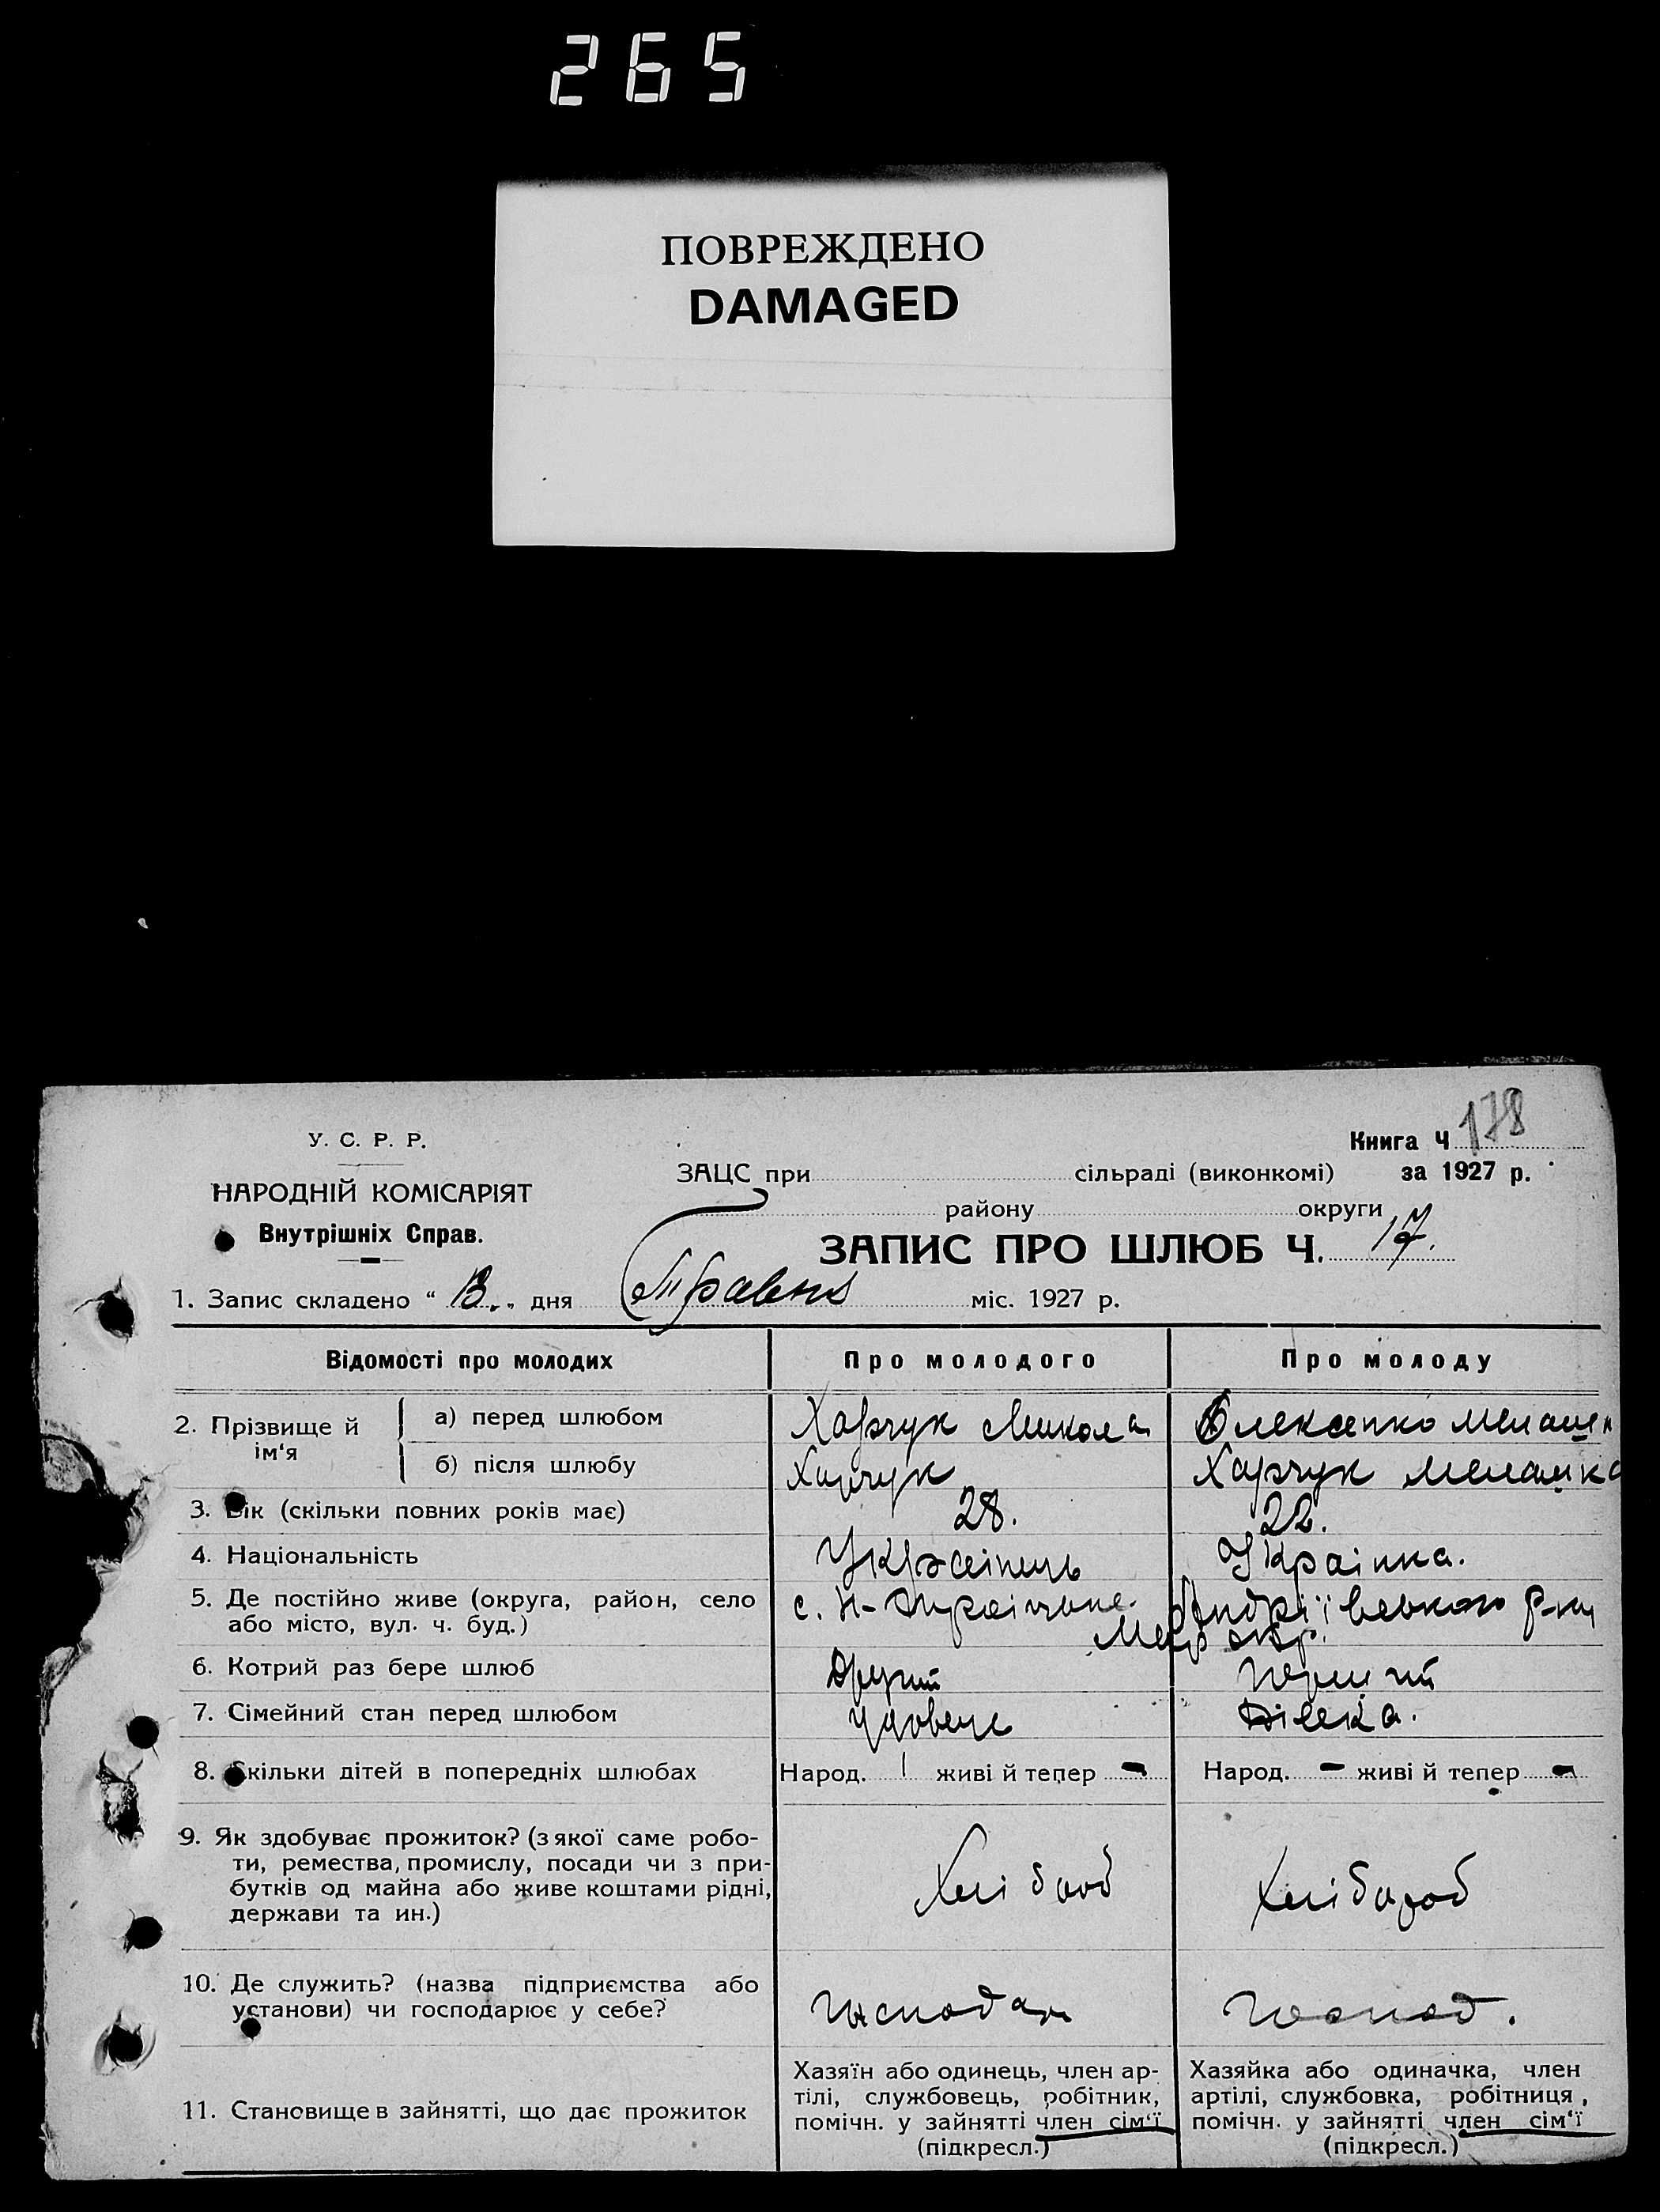 265
ПОВРЕЖДЕНО
DAMAGED
У. С. Р. Р.
НАРОДНІЙ КОМІСАРІЯТ
Внутрішніх Справ.
Книга Ч 178
ЗАЦС при сільраді (виконкомі) за 1927 р.
району округи
ЗАПИС ПРО ШЛЮБ Ч. 17.
1. Запис складено "13." дня Травня міс. 1927 р.
Відомості про молодих Про молодого Про молоду
2. Прізвище й ім'я
а) перед шлюбом Харчук Микола Олексенко
б) після шлюбу Харчук Харчук Мелашка
3. Вік (скільки повних років має) 28. 22.
4. Національність Українець Українка.
5. Де постійно живе (округа, район, село
або місто, вул. ч. буд.)
с. Андріївського р-ну
Мар окр.
6. Котрий раз бере шлюб Другий Перший
7. Сімейний стан перед шлюбом Удовець Дівка.
8. Скільки дітей в попередніх шлюбах Народ. 1 живі й тепер - Народ. - живі й тепер -
9. Як здобуває прожиток? (з якої саме робо-
ти, ремества, промислу, посади чи з при-
бутків од майна або живе коштами рідні,
держави та ин.)
Хлібороб Хлібороб
10. Де служить? (назва підприємства або
установи) чи господарює у себе?
Господар Господ.
11. Становище в зайнятті, що дає прожиток
Хазяїн або одинець, член ар-
тілі, службовець, робітник,
помічн. у зайнятті член сім'ї
(підкресл.)
Хазяйка або одиначка, член
артілі, службовка, робітниця,
помічн. у зайнятті член сім'ї
(підкресл.)